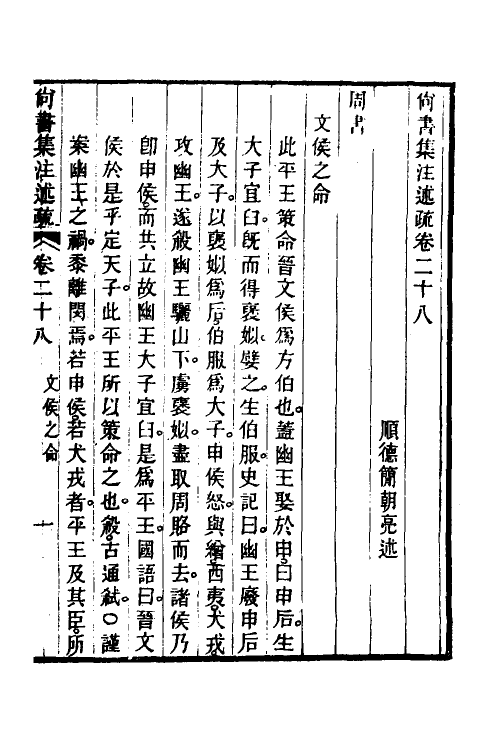 尙書集注述疏卷二十八
順德簡朝亮述
周書
文侯之命
此平王策命晉文侯爲方伯也。蓋幽王娶於申。曰申后。生
大子宜臼。旣而得褒姒。嬖之。生伯服。史記曰。幽王廢申后
及大子。以褒姒爲后。伯服爲大子。申侯怒。與繒西夷犬戎
攻幽王。遂殺幽王驪山下。虜褒姒。盡取周賂而去。諸侯乃
卽申侯。而共立故幽王大子宜臼。是爲平王。國語曰。晉文
侯於是乎定天子。此平王所以策命之也。殺古通弒。○謹
案幽王之禍。黍離閔焉。若申侯。若犬戎者。平王及其臣。所
尙書集注述疏 卷二十八 文侯之命 一